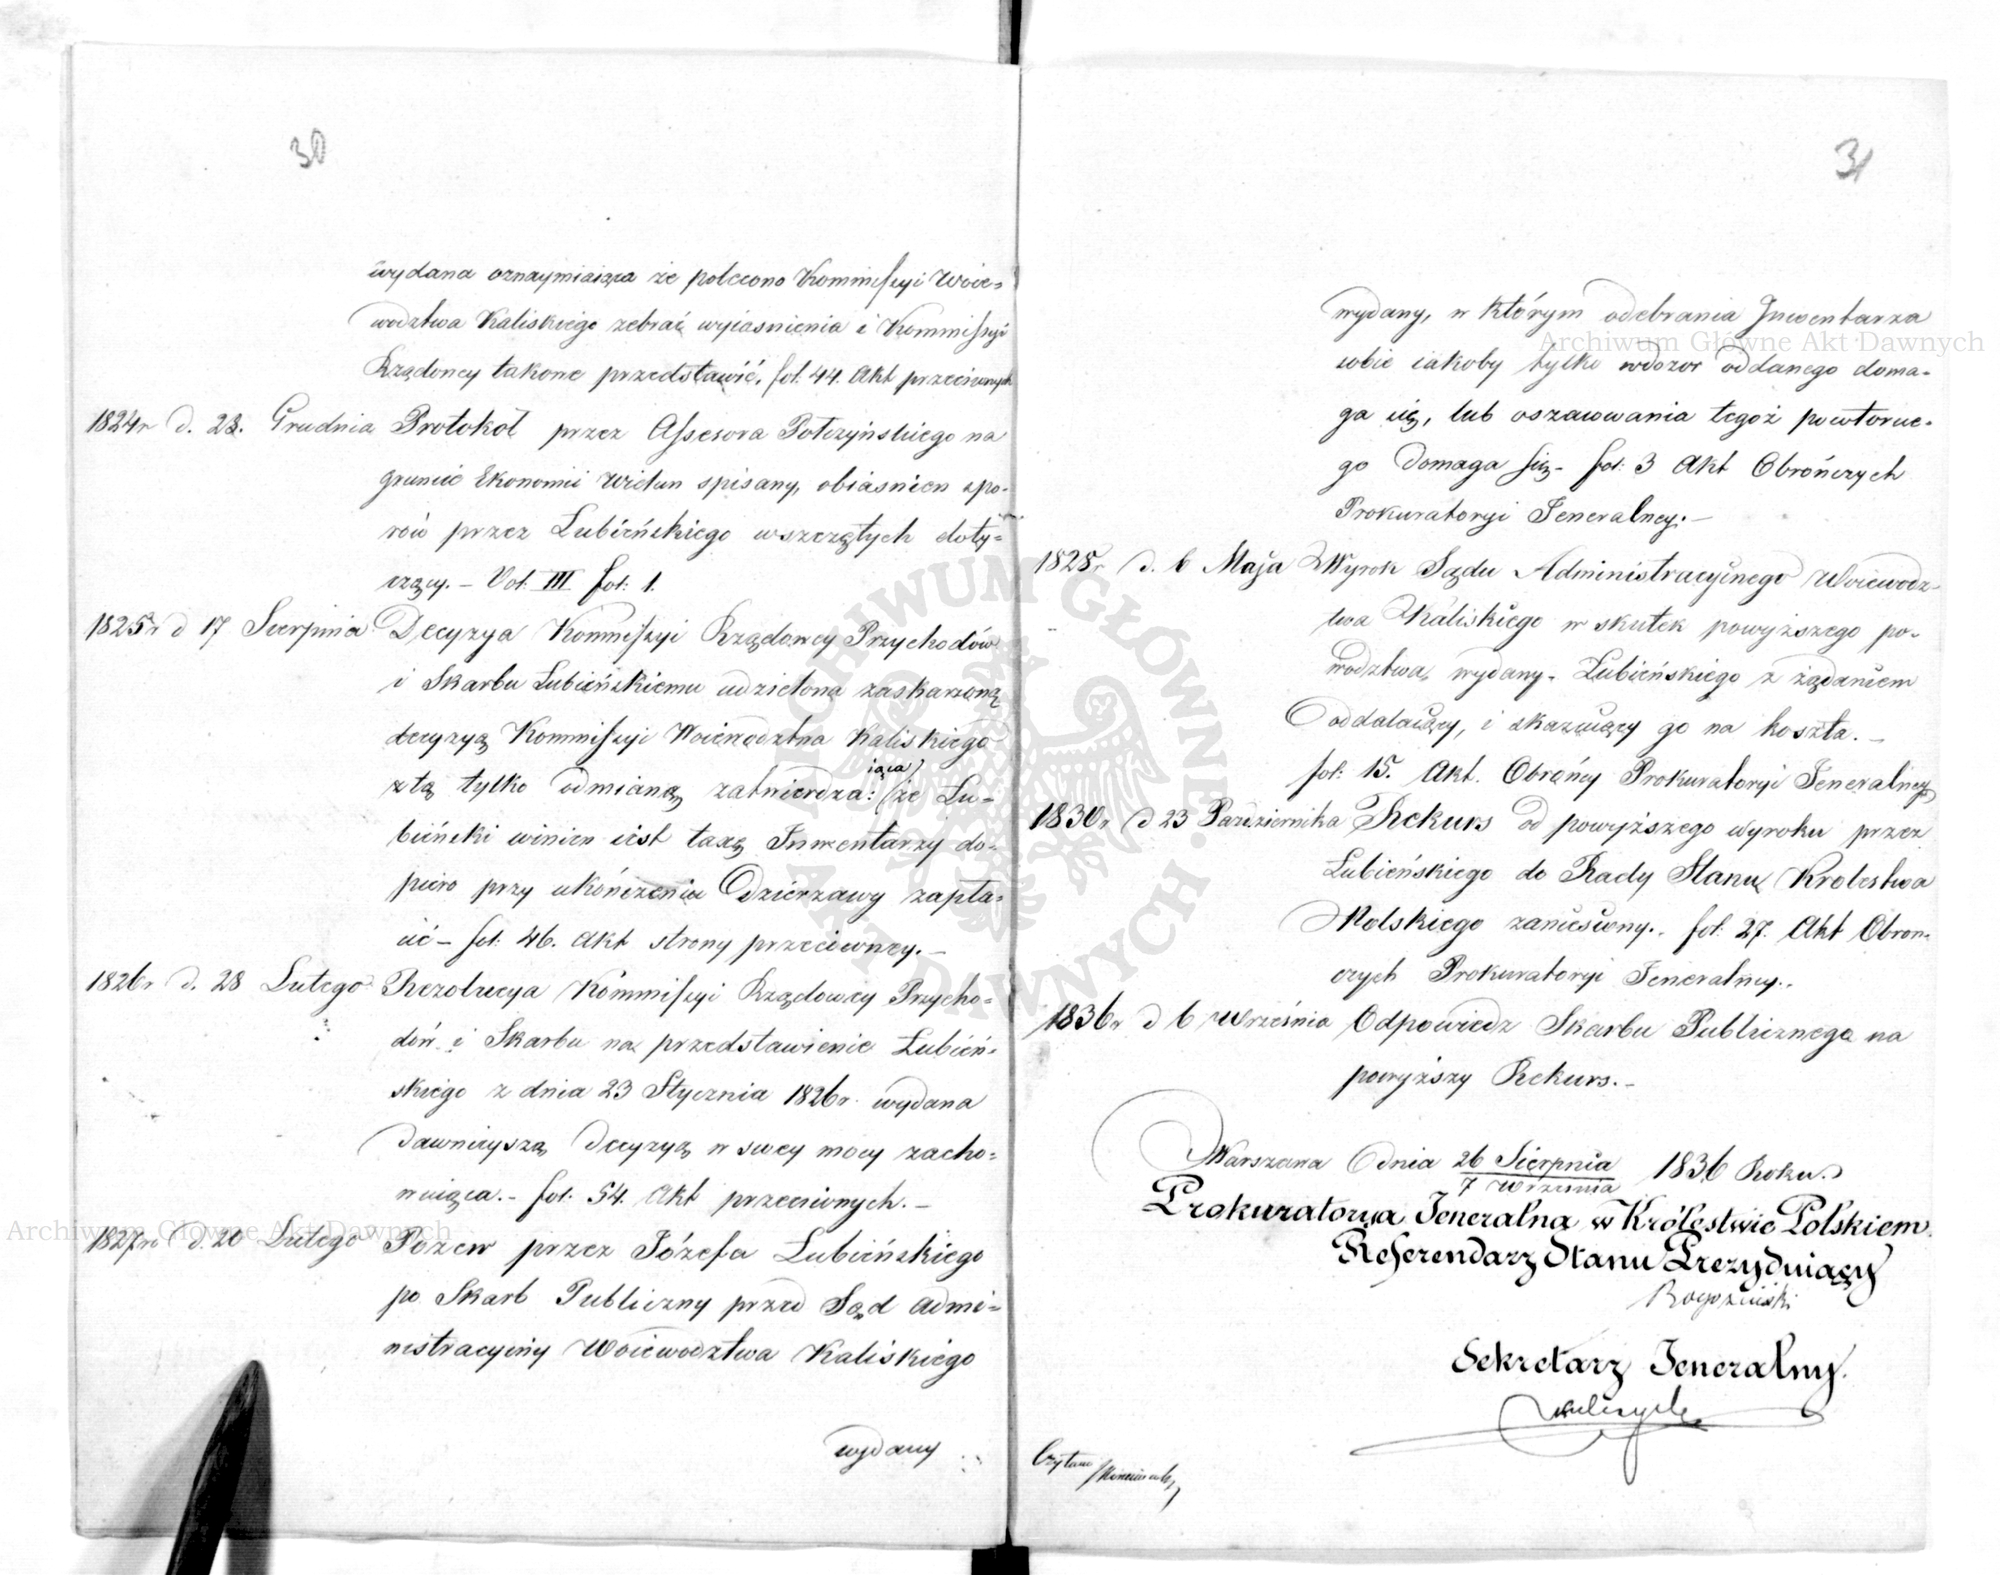 30
wydana oznaymiaiąca że polecono Kommissyi Woie-
wodztwa Kaliskiego zebrać wyiasnienia i Kommissyi
Rządowey takowe przedstawić, fol. 44. Akt przeciwnych
1824r d. 23. Grudnia Protokół przez Assesora Potczyńskiego na
gruncie Ekonomii Wieluń spisany, obiasnien spo-
rów przez Lubieńskiego wszczętych doty-
czący. – Vol. III fol: 1.
1825r d 17 Sierpnia Decyzya Kommissyi Rządowey Przychodów
i Skarbu Lubieńskiemu udzielona zaskarżoną
decyzyą Kommissyi Woiewodztwa Kaliskiego
z tą tylko odmianą zatwierdzaiąca: że Lu-
bieński winien iest taxę Inwentarzy do-
piero przy ukończeniu Dzierzawy zapła-
cić – fol: 46. Akt strony przeciwney. –
1826r d. 28 Lutego Rezolucya Kommissyi Rządowey Przycho-
dów i Skarbu na przedstawienie Lubień-
skiego z dnia 23 Stycznia 1826r. wydana
dawnieyszą decyzyą w swey mocy zacho-
wuiąca. – fol. 54. Akt przeciwnych. –
1827r d. 20 Lutego Pozew przez Józefa Lubieńskiego
po Skarb Publiczny przed Sąd Admi-
nistracyiny Woiewodztwa Kaliskiego
wydany
31
wydany, w którym odebrania Inwentarza
sobie iakoby tylko w dozor oddanego doma-
ga się, lub oszacowania tegoż powtorne-
go domaga się – fol: 3 Akt Obrończych
Prokuratoryi Jeneralney. –
1828r d. 6 Maja Wyrok Sądu Administracyinego Woiewodz-
twa Kaliskiego w skutek powyższego po-
wodztwa, wydany – Lubieńskiego z żądaniem
oddalaiący, i skazuiący go na koszta. –
fol: 15. Akt. Obrończy Prokuratoryi Jeneralney
1830r d 23 Pazdziernika Rekurs od powyższego wyroku przez
Lubieńskiego do Rady Stanu Krolestwa
Polskiego zaniesiony. fol. 27. Akt Obron-
czych Prokuratoryi Jeneralney.
1836r d 6 Września Odpowiedz Skarbu Publicznego na
powyższy Rekurs. –
Warszawa dnia 26 Sierpnia / 7 Września 1836 Roku.
Prokuratorya Jeneralna w Królestwie Polskiem.
Referendarz Stanu Prezyduiący
Rogoziński
Sekretarz Jeneralny.
Czytano
Archiwum Główne Akt Dawnych
Archiwum Główne Akt Dawnych
ARCHIWUM GŁÓWNE AKT DAWNYCH